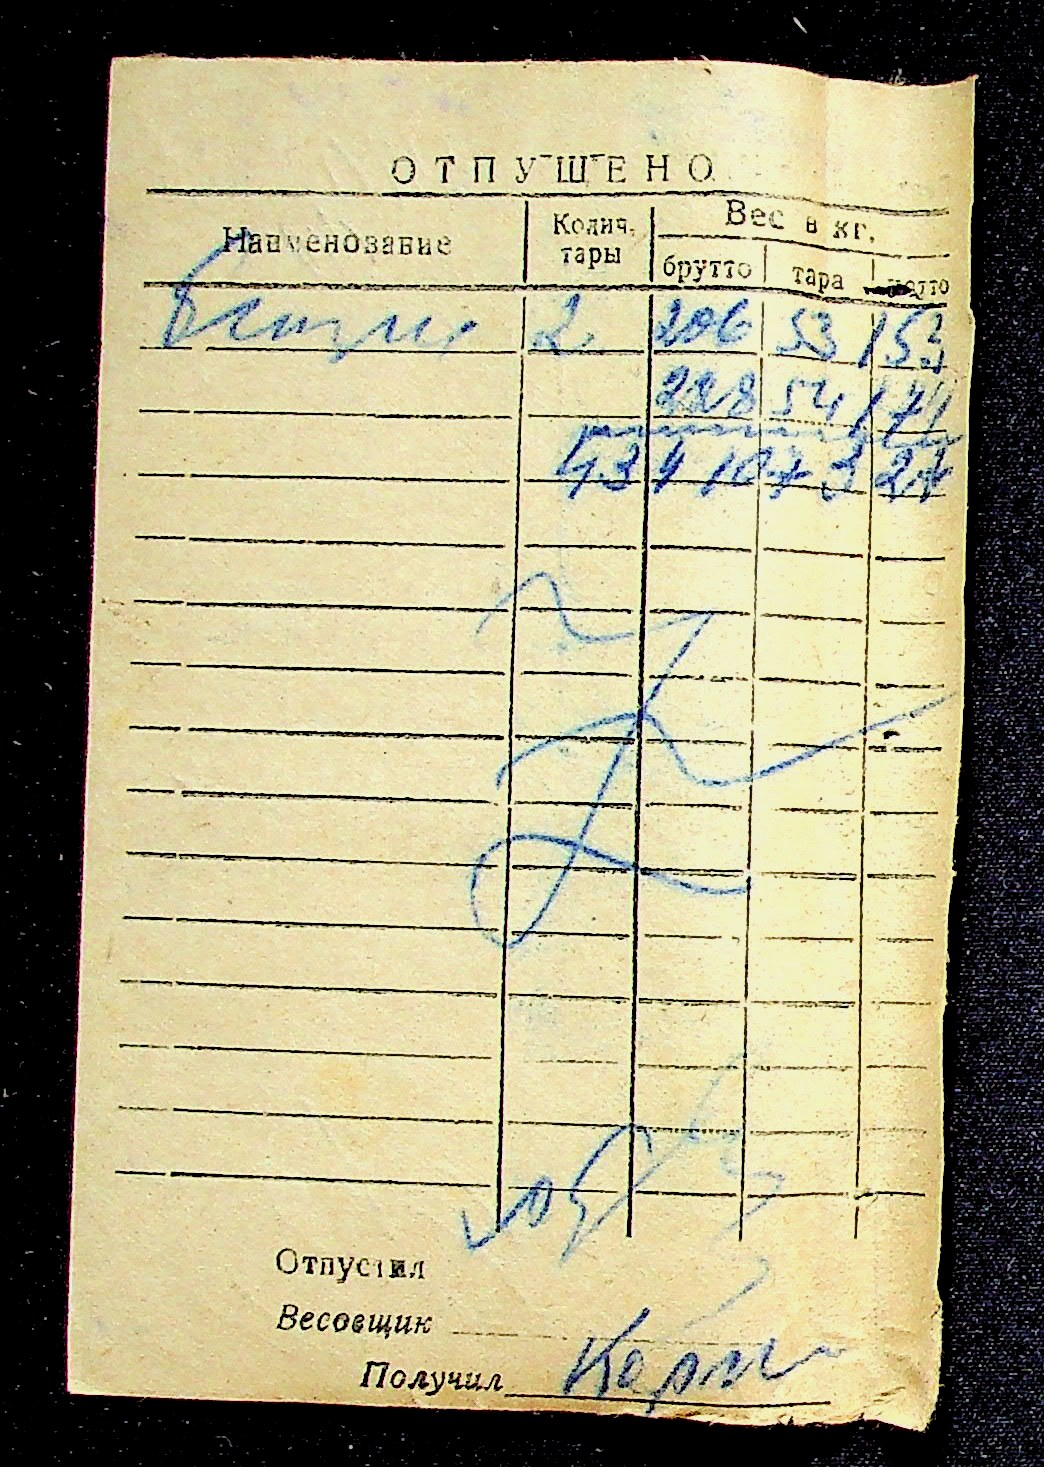 ОТПУЩЕНО
Наименование Колич. тары Вес в кг.
брутто тара нетто
Бензин 2 206 53 153
228 54 174
434 107 327
Отпустил
Весовщик
Получил